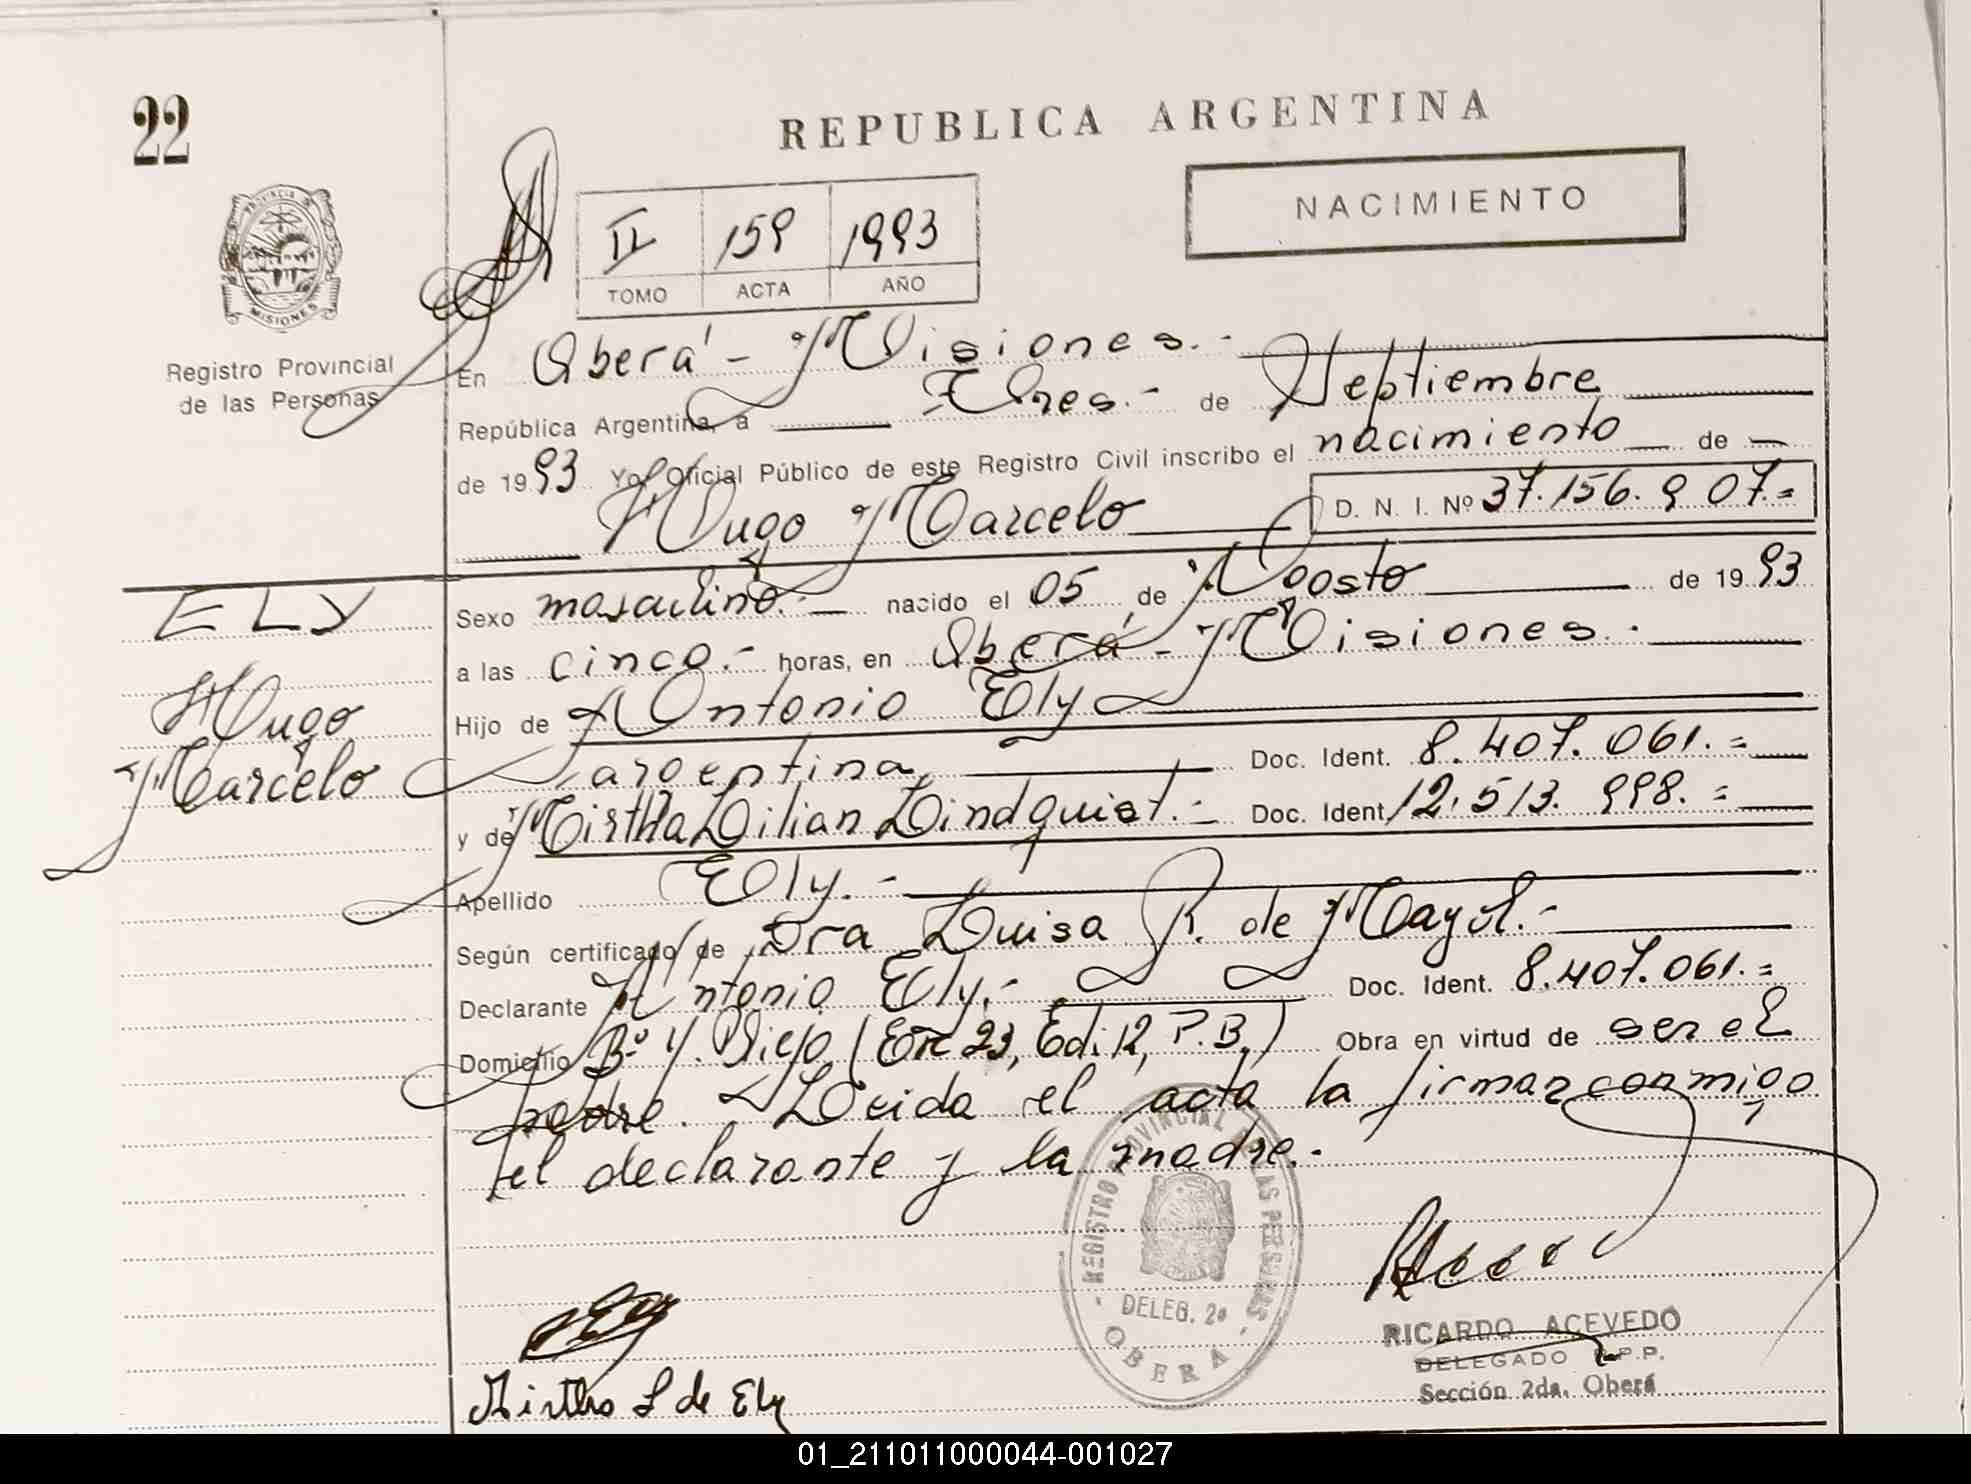 22
REPUBLICA ARGENTINA
NACIMIENTO
II 159 1993
TOMO ACTA AÑO
PROVINCIA DE
MISIONES
Registro Provincial
de las Personas
En Oberá - Misiones.-
República Argentina, a Tres.- de Septiembre
de 1993 Yo, Oficial Público de este Registro Civil inscribo el nacimiento de
Hugo Marcelo D. N. I. Nº 37.156.907.=
ELY
Hugo
Marcelo
Sexo masculino.- nacido el 05 de Agosto de 1993
a las cinco.- horas, en Oberá - Misiones.-
Hijo de Antonio Ely
argentina Doc. Ident. 8.407.061.=
y de Mirtha Lilian Lindquist.- Doc. Ident. 12.513.998.=
Apellido Ely.-
Según certificado de Dra Luisa R. de Mayol.-
Declarante Antonio Ely.- Doc. Ident. 8.407.061.=
Domicilio Bº Y. Viejo (Esc 23, Edi. 12, P.B.) Obra en virtud de ser el
padre. Leida el acta la firman conmigo
el declarante y la madre.-
REGISTRO PROVINCIAL DE LAS PERSONAS
DELEG. 2ª
OBERA
Mirtha L de Ely
RICARDO ACEVEDO
DELEGADO R.P.P.
Sección 2da. Oberá
01_211011000044-001027